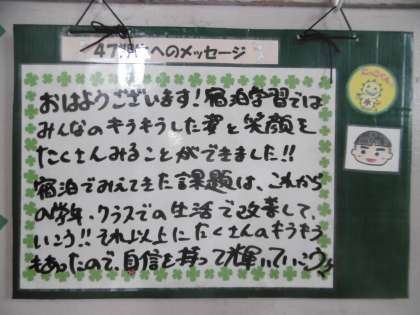 47期生へのメッセージ
おはようございます！宿泊学習では
みんなのキラキラした姿と笑顔を
たくさんみることができました！！
宿泊でみえてきた課題は、これから
の学年、クラスでの生活で改善して
いこう！！それ以上にたくさんのキラキラ
もあったので、自信を持って輝いていこう